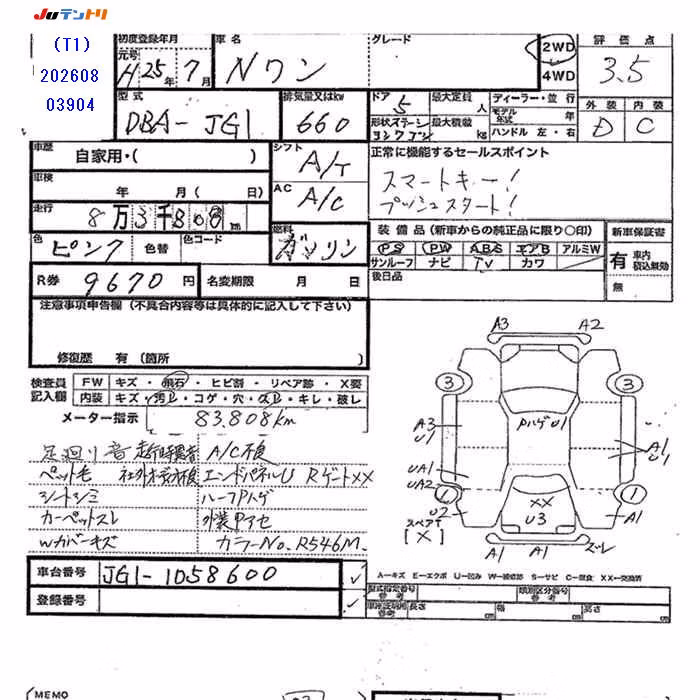 JUテントリ
(T1)
202608
03904
初度登録年月
元号
H 25年 7月
車名
Nワン
グレード
2WD
4WD
評価点
3.5
外装 内装
D C
型式
DBA-JG1
排気量又はkw
660
ドア
5
形状
最大定員
人
最大積載
kg
ディーラー・並行
モデル年式
年
ハンドル 左・右
車歴
自家用・( )
シフト
A/T
正常に機能するセールスポイント
スマートキー!
プッシュスタート!
車検
年 月( 日)
AC
A/C
走行
8万3千808km
色
ピンク
色替
色コード
燃料
ガソリン
装備品(新車からの純正品に限り○印)
PS PW ABS エアB アルミW
サンルーフ ナビ TV カワ
新車保証書
有 車内 積込無効
無
後日品
R券 9670円
名変期限 月 日
注意事項申告欄(不具合内容等は具体的に記入して下さい)
修復歴 有(箇所 )
検査員記入欄
FW キズ・飛石・ヒビ割・リペア跡・X要
内装 キズ・汚レ・コゲ・穴・スレ・キレ・破レ
メーター指示 83,808km
足廻り音
A/C不良
ペット毛
エンドパネルU RゲートXX
シートシミ
ルーフPハゲ
カーペットスレ
外装色アセ
Wカバーキズ
カラーNo. R546M.
A3 A2
3 3
PハゲU1
A3
U1
A1
U1
UA1
UA2
1 1
U2
XX
U3
A1
スペアT
[X]
A1 A1 ズレ
A-キズ E-エクボ U-凹み W-補修跡 S-サビ C-腐食 XX-交換済
車台番号 JG1-1058600
登録番号
型式指定番号
参考
類別区分番号
参考
車庫証明用
参考
長さ cm
幅 cm
高さ cm
MEMO